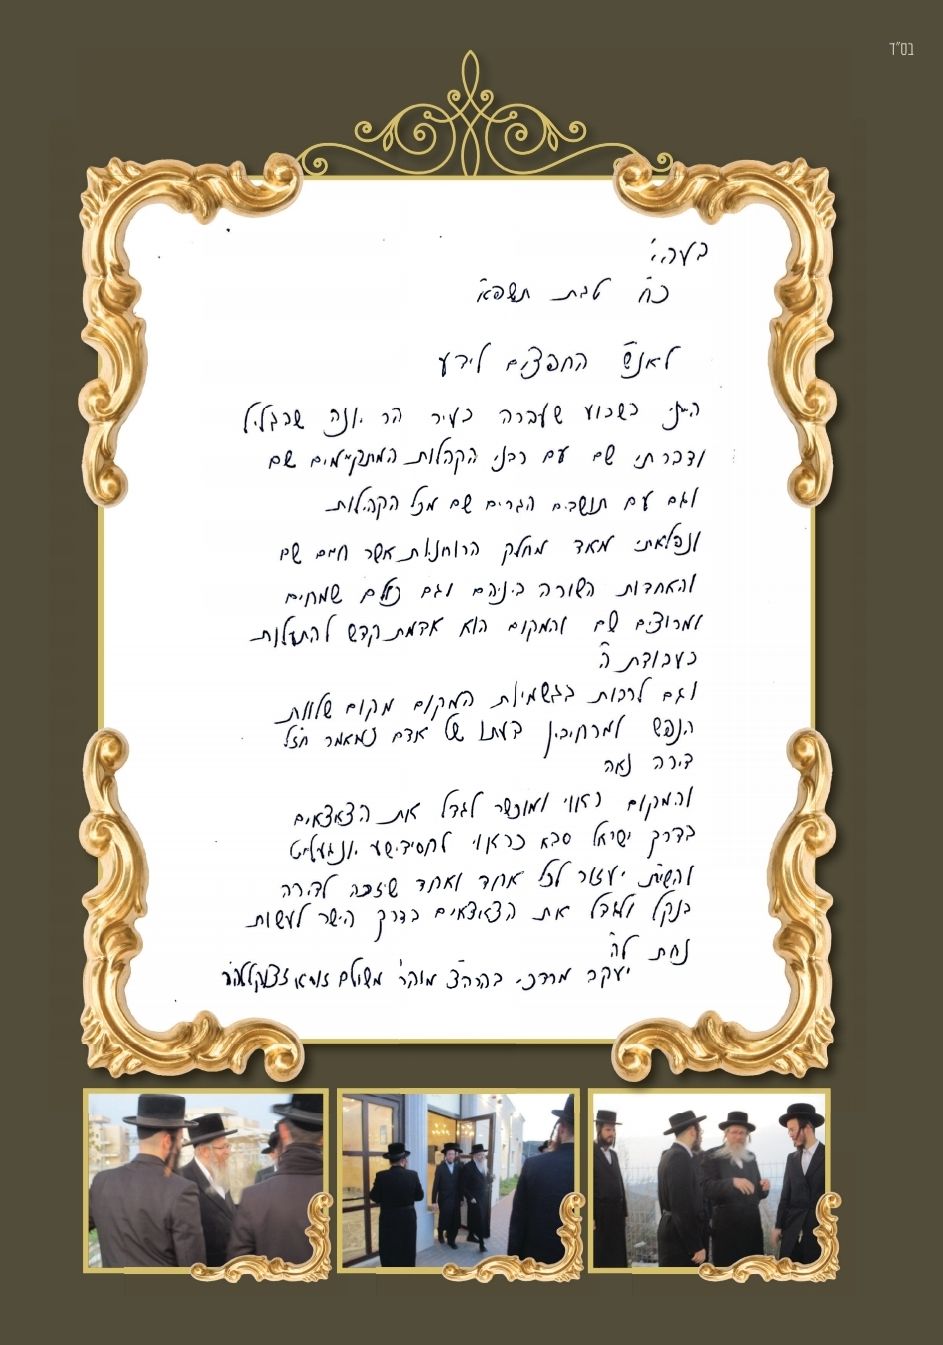 בס"ד
בעהי"
כ"ח טבת תשפ"א
לאנ"ש החפצים לידע
הייתי בשבוע שעברה בעיר הר יונה שבגליל
ודברתי שם עם רבני הקהלות המתקיימים שם
וגם עם תושבים הגרים שם מכל הקהילות
ונפלאתי מאד מחלק הרוחניות אשר חיים שם
והאחדות השורה ביניהם וגם כולם שמחים
ומרוצים שם והמקום הוא אדמת קדש להתעלות
בעבודת ה'
וגם לרבות בגשמיות המקום מקום שלוות
הנפש ומרחיבין דעתו של אדם כמאמר חז"ל
דירה נאה
והמקום ראוי ומוכשר לגדל את הצאצאים
בדרך ישראל סבא כראוי לחסידישע יונגעלייט
והשי"ת יעזור לכל אחד ואחד שיזכה לדירה
בנקל ולגדל את הצאצאים בדרך הישר לעשות
נחת לה'
יעקב מרדכי בהרה"צ מוהר"ר משולם זושא